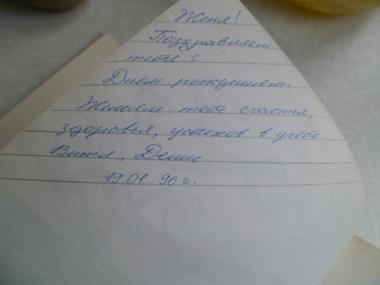 Женя!
Поздравляем
тебя с
Днём рождением.
Желаем тебе счастья,
здоровья, успехов в учёбе.
Денис
19.01.96 г.